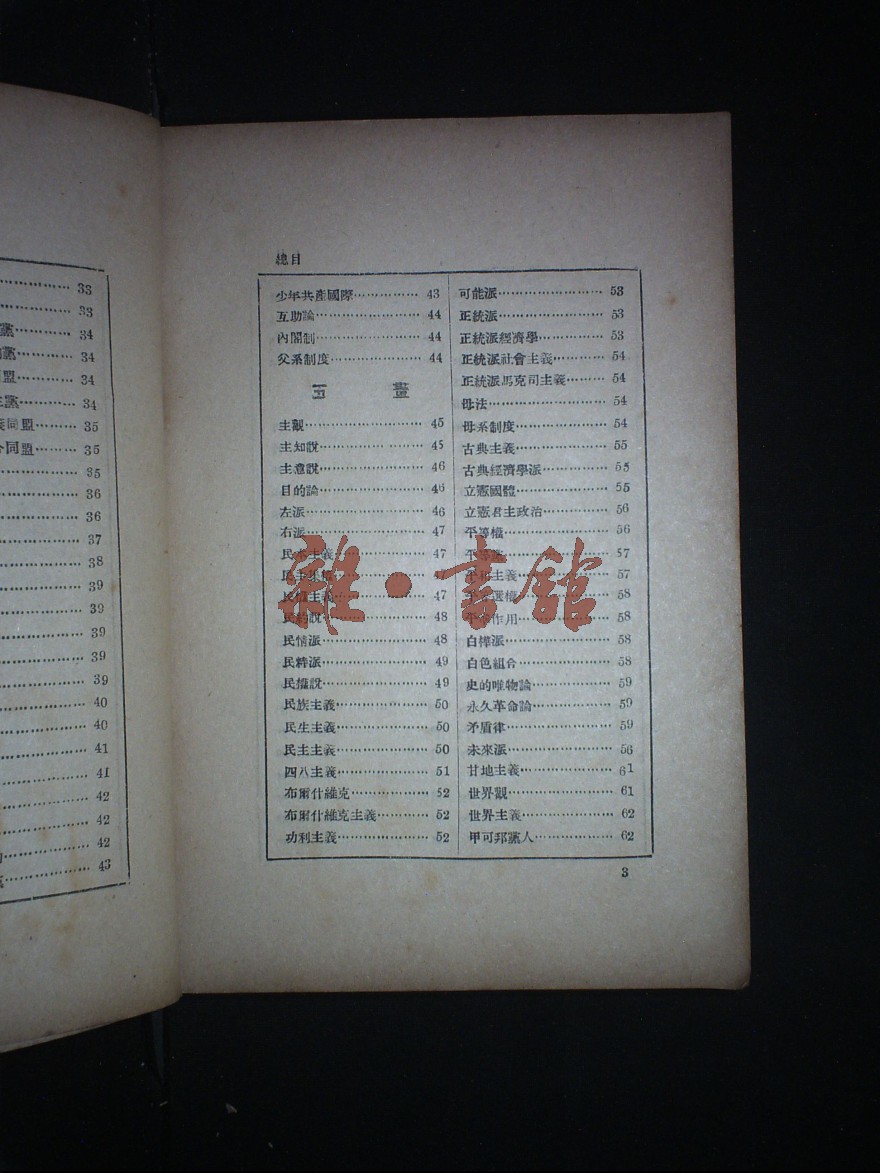 33
33
黨 34
黨 34
盟 34
黨 34
同盟 35
同盟 35
35
36
36
37
38
39
39
39
39
39
40
40
41
41
42
42
42
43
總目
少年共產國際 43
互助論 44
內閣制 44
父系制度 44
五畫
主觀 45
主知說 45
主意說 46
目的論 46
左派 46
右派 47
民本主義 47
民主集權 47
民權主義 47
民約說 48
民情派 48
民粹派 49
民權說 49
民族主義 50
民生主義 50
民主主義 50
四八主義 51
布爾什維克 52
布爾什維克主義 52
功利主義 52
可能派 53
正統派 53
正統派經濟學 53
正統派社會主義 54
正統派馬克司主義 54
母法 54
母系制度 54
古典主義 55
古典經濟學派 55
立憲國體 55
立憲君主政治 56
平等權 56
平等黨 57
平和主義 57
選權 58
作用 58
白樺派 58
白色組合 58
史的唯物論 59
永久革命論 59
矛盾律 59
未來派 56
甘地主義 61
世界觀 61
世界主義 62
甲可邦黨人 62
3
雜·書館